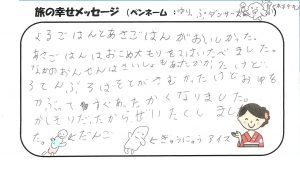 旅の幸せメッセージ (ペンネーム:ゆりっぷダンサーズ)
よるごはんとあさごはんがおいしかった。
あさごはんはおこめ大もりを3ばいたべました。
なかのおんせんはさいしょもあたたかかったけど
ろてんぶろはそとがさむかったけどおゆを
かぶってすぐあたたかくなりました。
かしきりだったからぜいたくしました。
←だんご
←ぎゅうにゅうアイス